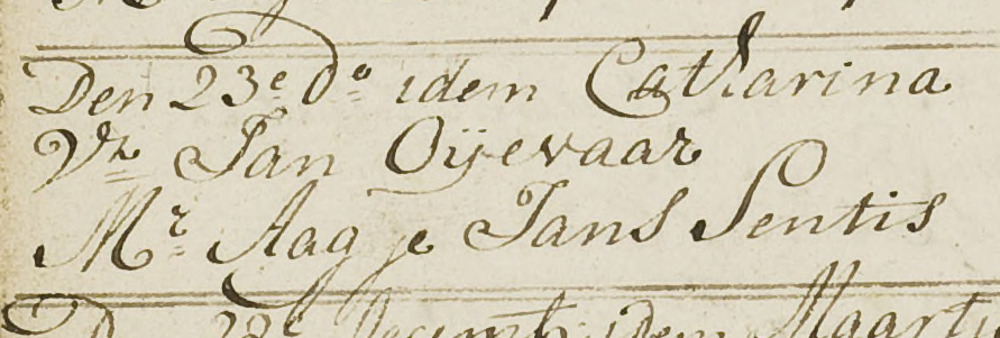 Den 23e do idem Catharina
Vr Jan Oijevaar
Mr Aagje Jans Sentis
28e Decemb: idem Maartje